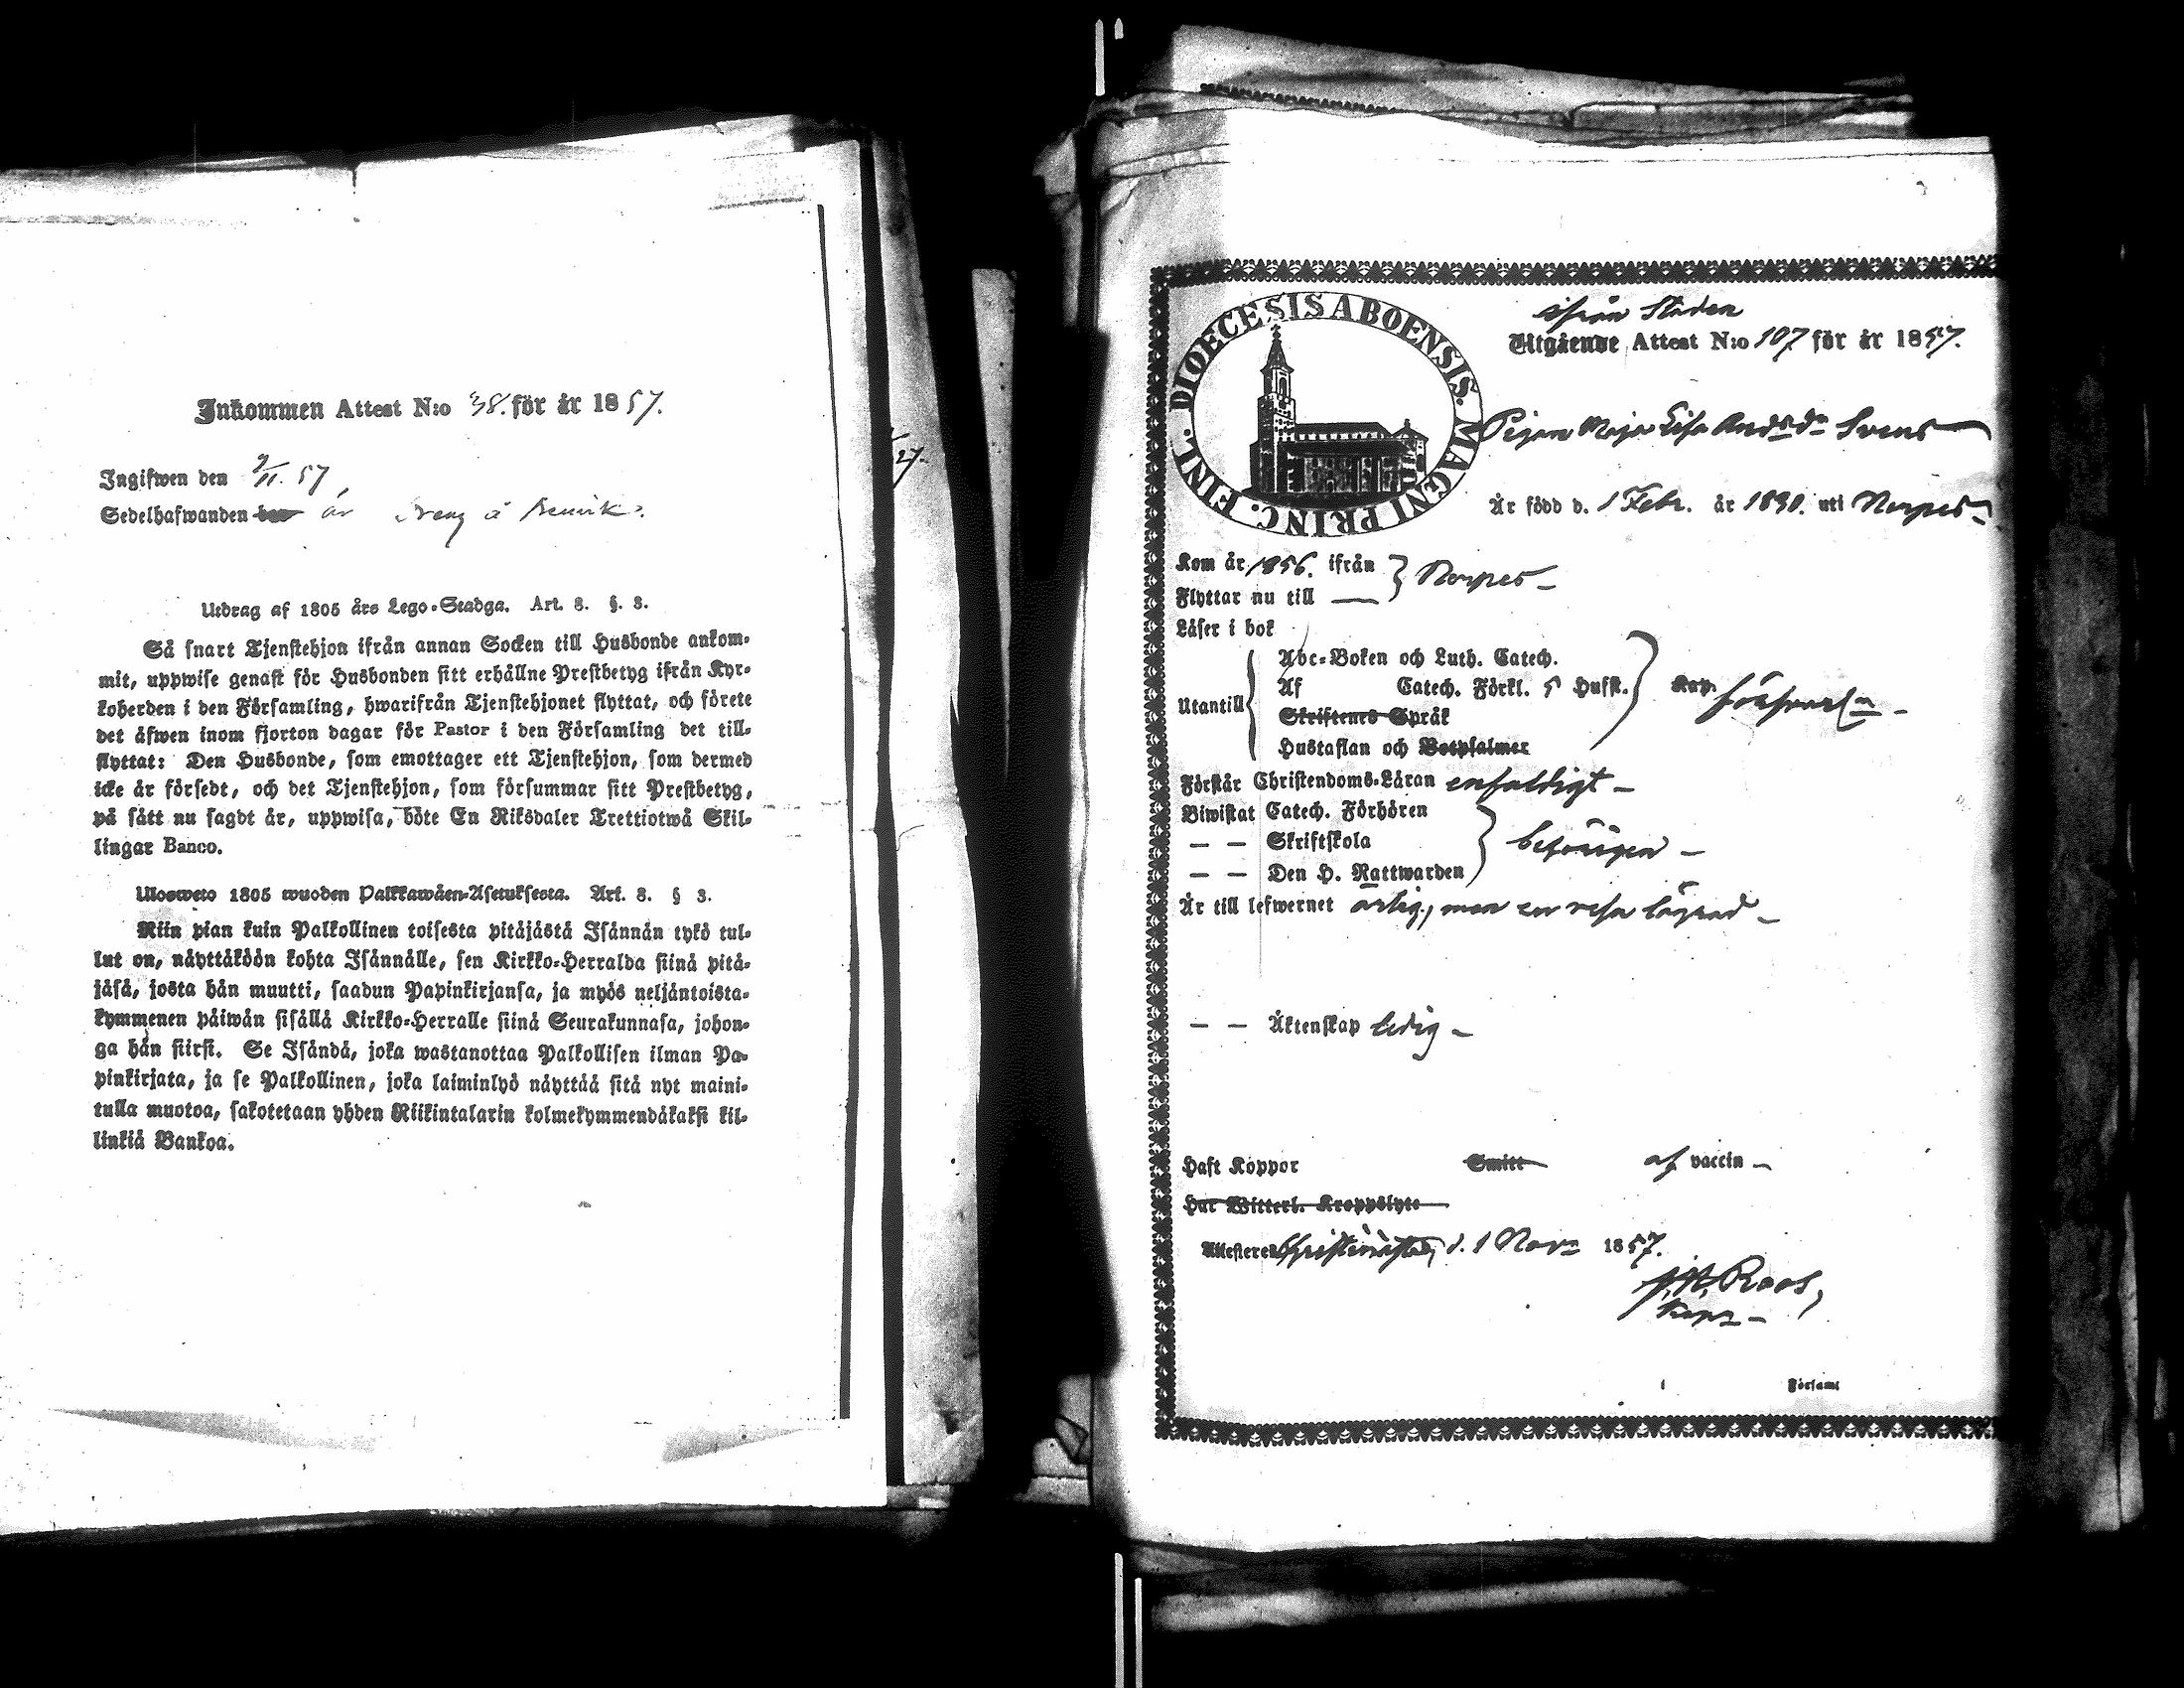 Inkommen Attest N:o 38. för år 1857.
Ingifwen den 9/11. 57,
Sedelhafwanden har är dreng å
Utdrag af 1805 års Lego-Stadga. Art. 8. §. 3.
Så snart Tjenstehjon ifrån annan Socken till Husbonde ankom-
mit, uppwise genast för Husbonden sitt erhållne Prestbetyg ifrån Kyr-
koherden i den Församling, hwarifrån Tjenstehjonet flyttat, och förete
det äfwen inom fjorton dagar för Pastor i den Församling det till-
flyttat: Den Husbonde, som emottager ett Tjenstehjon, som dermed
icke är försedt, och det Tjenstehjon, som försummar sitt Prestbetyg,
på sätt nu sagdt är, uppwisa, böte En Riksdaler Trettiotwå Skil-
lingar Banco.
Ulosweto 1805 wuoden Palkkawäen-Asetuksesta. Art. 8. § 3.
Niin pian kuin Palkollinen toisesta pitäjästä Isännän tykö tul-
lut on, näyttäköön kohta Isännälle, sen Kirkko-Herralda siinä pitä-
jäsä, josta hän muutti, saadun Papinkirjansa, ja myös neljäntoista-
kymmenen päiwän sisällä Kirkko-Herralle siinä Seurakunnasa, johon-
ga hän siirsi. Se Isändä, joka wastanottaa Palkollisen ilman Pa-
pinkirjata, ja se Palkollinen, joka laiminlyö näyttää sitä nyt maini-
tulla muotoa, sakotetaan yhden Riikintalarin kolmekymmendäkaksi kil-
linkiä Bankoa.
27.
DIOECESIS ABOENSIS. MAGNI PRINC. FINL.
ifrån Staden
Utgående Attest N:o 107 för år 1857.
Pigan Maja Lisa Andsdr Svens
Är född d. 1 Febr. år 1830. uti Nerpes
Kom år 1856. ifrån } Nerpes
Flyttar nu till
Läser i bok
Abc-Boken och Luth. Catech.
Utantill { Af Catech. Förkl. 5 Hufst. } försvarl.
Skriftenes Språk
Hustaflan och Botpsalmer
Förstår Christendoms-Läran enfaldigt
Biwistat Catech. Förhören
— — Skriftskola } behörigen
— — Den H. Nattwarden
Är till lefwernet ärlig, men en resa lägrad
— — Äktenskap ledig
Haft Koppor Smitt af vaccin
Har Witterl. Kroppslyte
Attesterar Christinæstad, d. 1 Nov. 1857.
Roos,
Församl